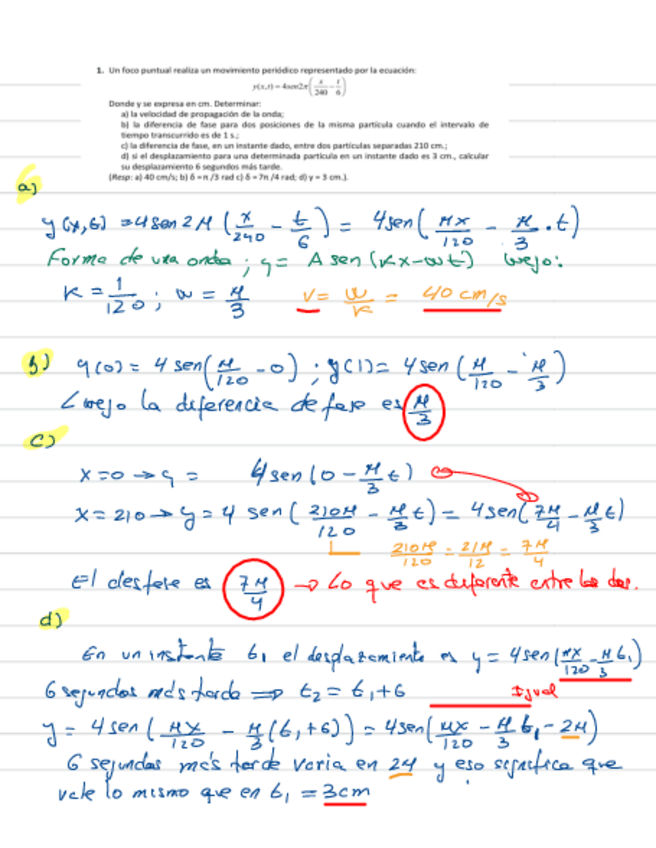 1. Un foco puntual realiza un movimiento periódico representado por la ecuación:
y(x,t) = 4sen2π(x/240 − t/6)
Donde y se expresa en cm. Determinar:
a) la velocidad de propagación de la onda;
b) la diferencia de fase para dos posiciones de la misma partícula cuando el intervalo de
tiempo transcurrido es de 1 s.;
c) la diferencia de fase, en un instante dado, entre dos partículas separadas 210 cm.;
d) si el desplazamiento para una determinada partícula en un instante dado es 3 cm., calcular
su desplazamiento 6 segundos más tarde.
(Resp: a) 40 cm/s; b) δ = π /3 rad c) δ = 7π /4 rad; d) y = 3 cm.).
a)
y(x,t) = 4 sen 2π (x/240 − t/6) = 4sen(πx/120 − π/3 · t)
Forma de una onda; y = A sen(kx−ωt) luego:
k = 1/120; ω = π/3 v = ω/k = 40 cm/s
b) y(0) = 4 sen(π/120 − 0); y(1) = 4 sen(π/120 − π/3)
Luego la diferencia de fase es π/3
c)
x=0 → y = 4sen(0 − π/3 t)
x=210 → y = 4 sen(210π/120 − π/3 t) = 4sen(7π/4 − π/3 t)
210π/120 = 21π/12 = 7π/4
El desfase es 7π/4 → Lo que es diferente entre las dos.
d)
En un instante t₁ el desplazamiento es y = 4sen(πx/120 − π/3 t₁)
6 segundos más tarde ⇒ t₂ = t₁+6 Igual
y = 4sen(πx/120 − π/3(t₁+6)) = 4sen(πx/120 − π/3 t₁ − 2π)
6 segundos más tarde varia en 2π y eso significa que
vale lo mismo que en t₁ = 3cm